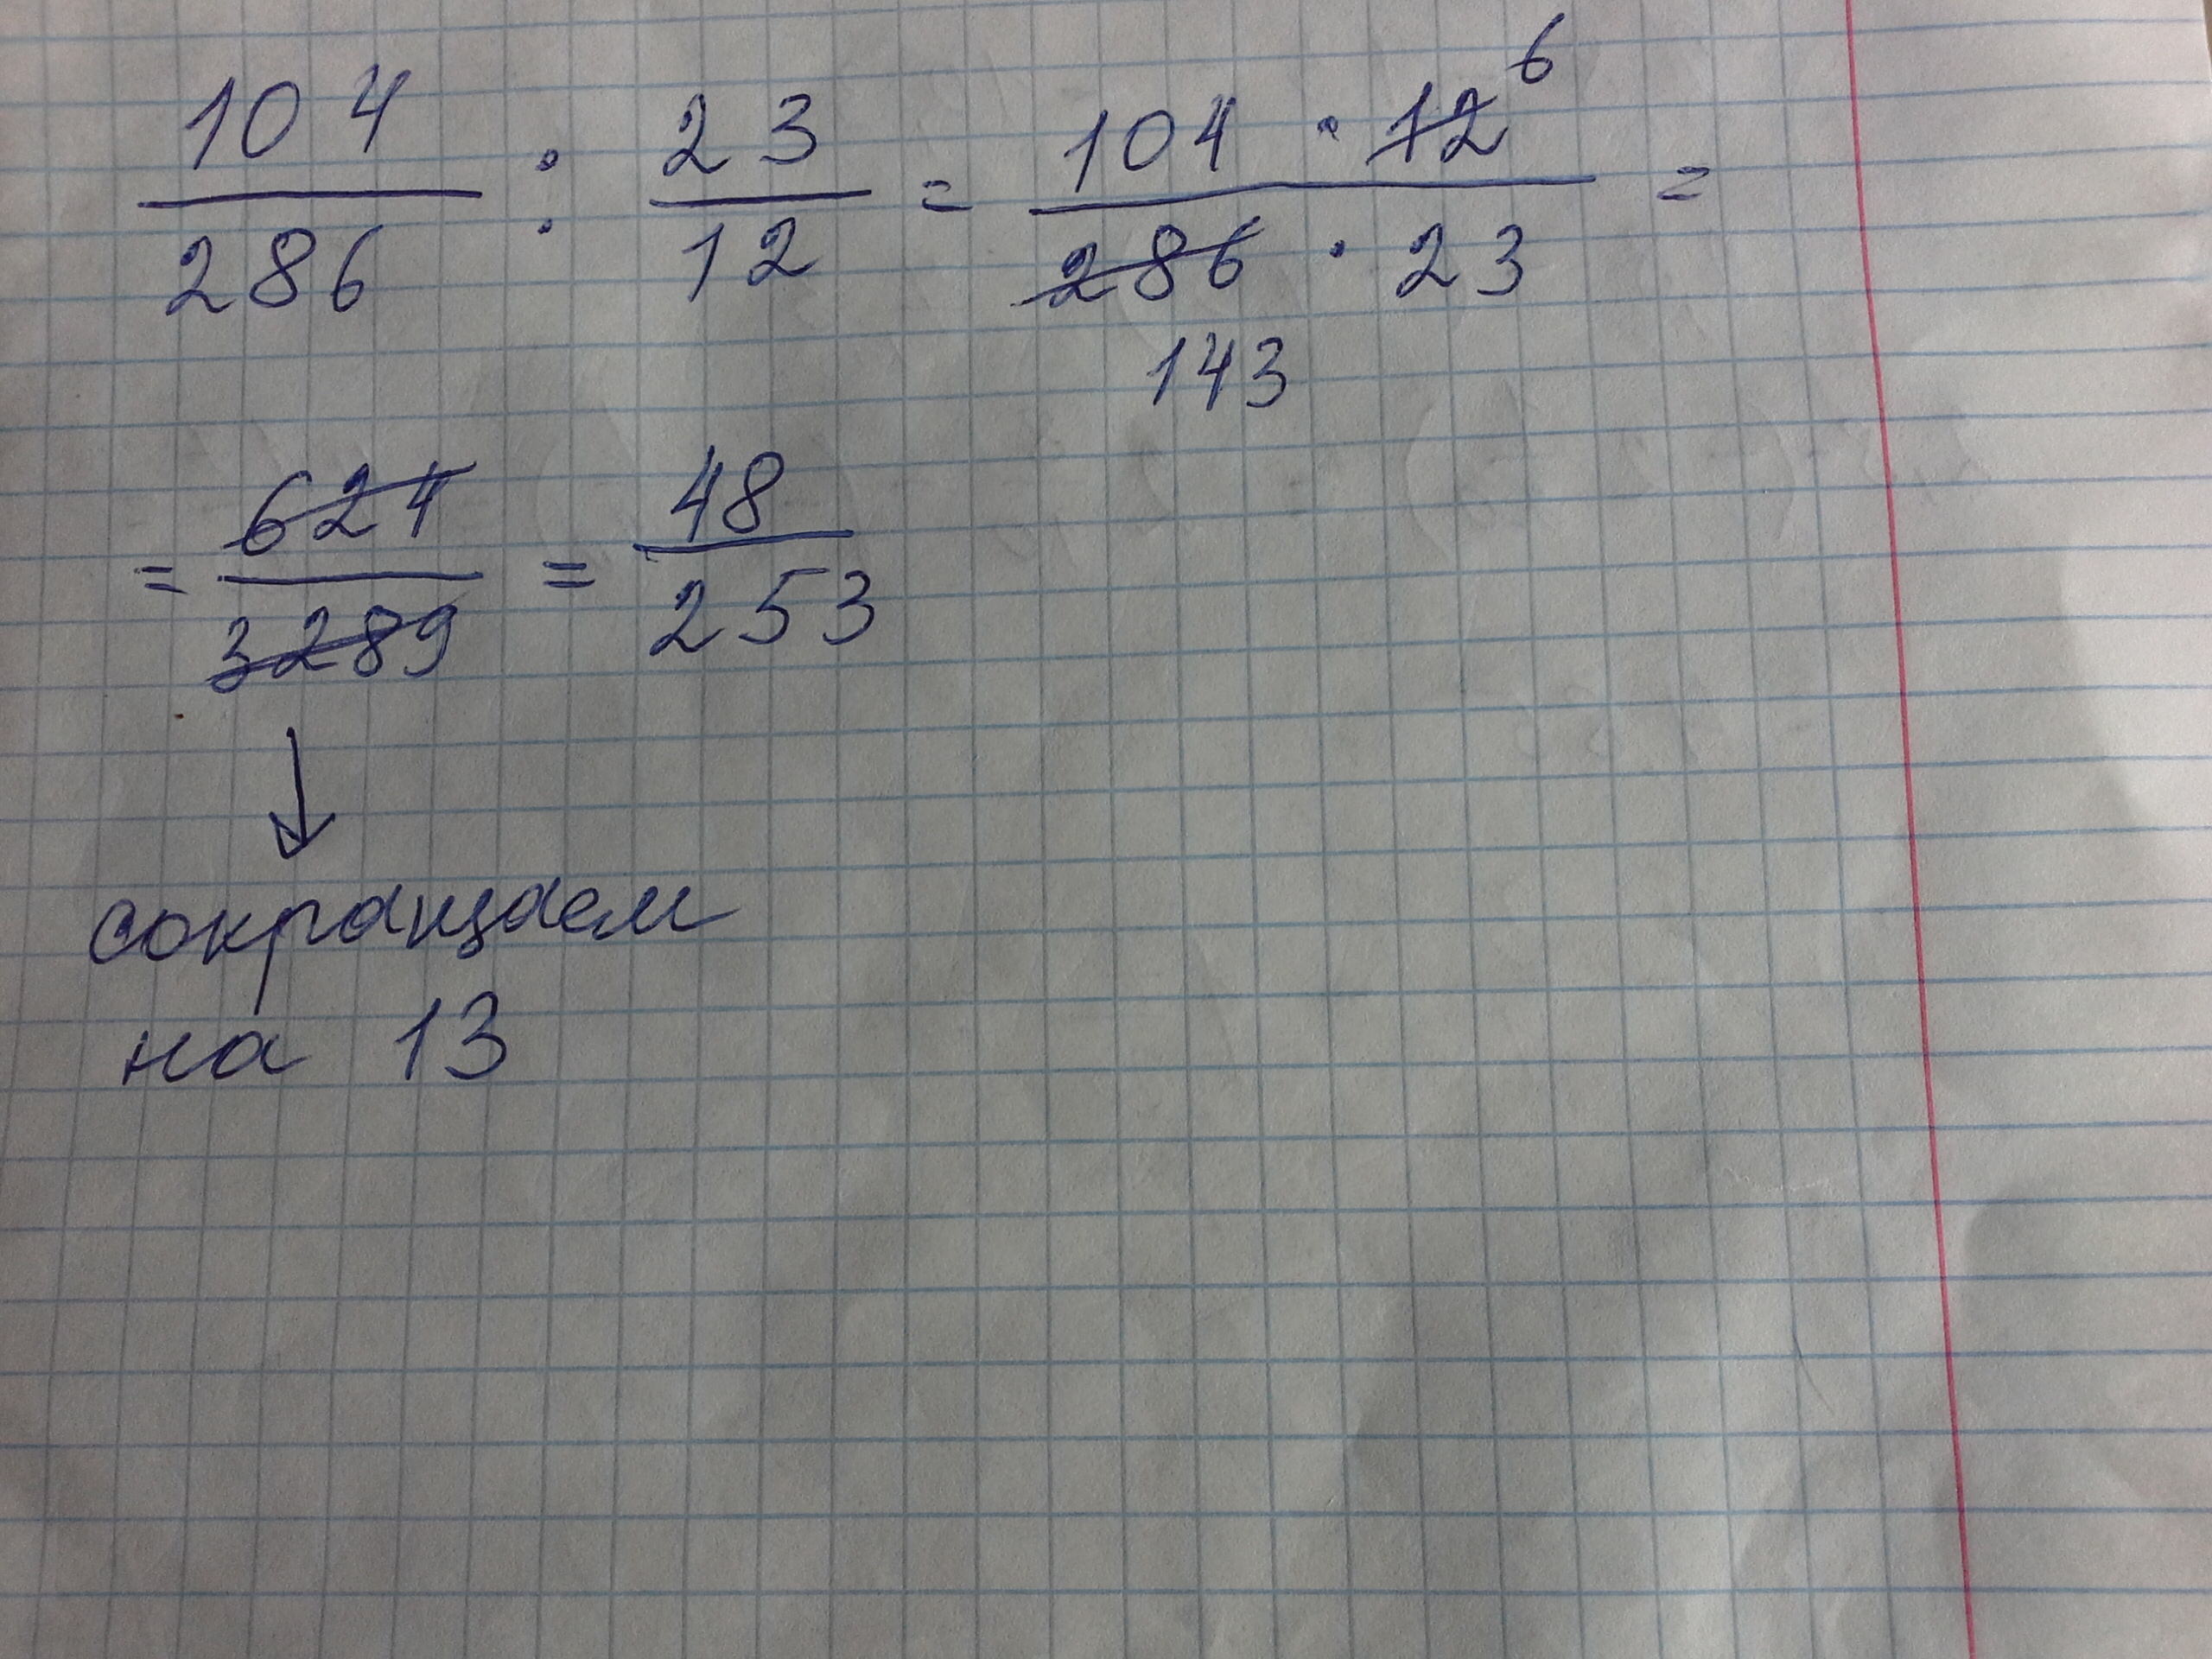 104/286 : 23/12 = 104 · 12 6 / 286 · 23 =
143
= 624/3289 = 48/253
↓
сокращаем
на 13